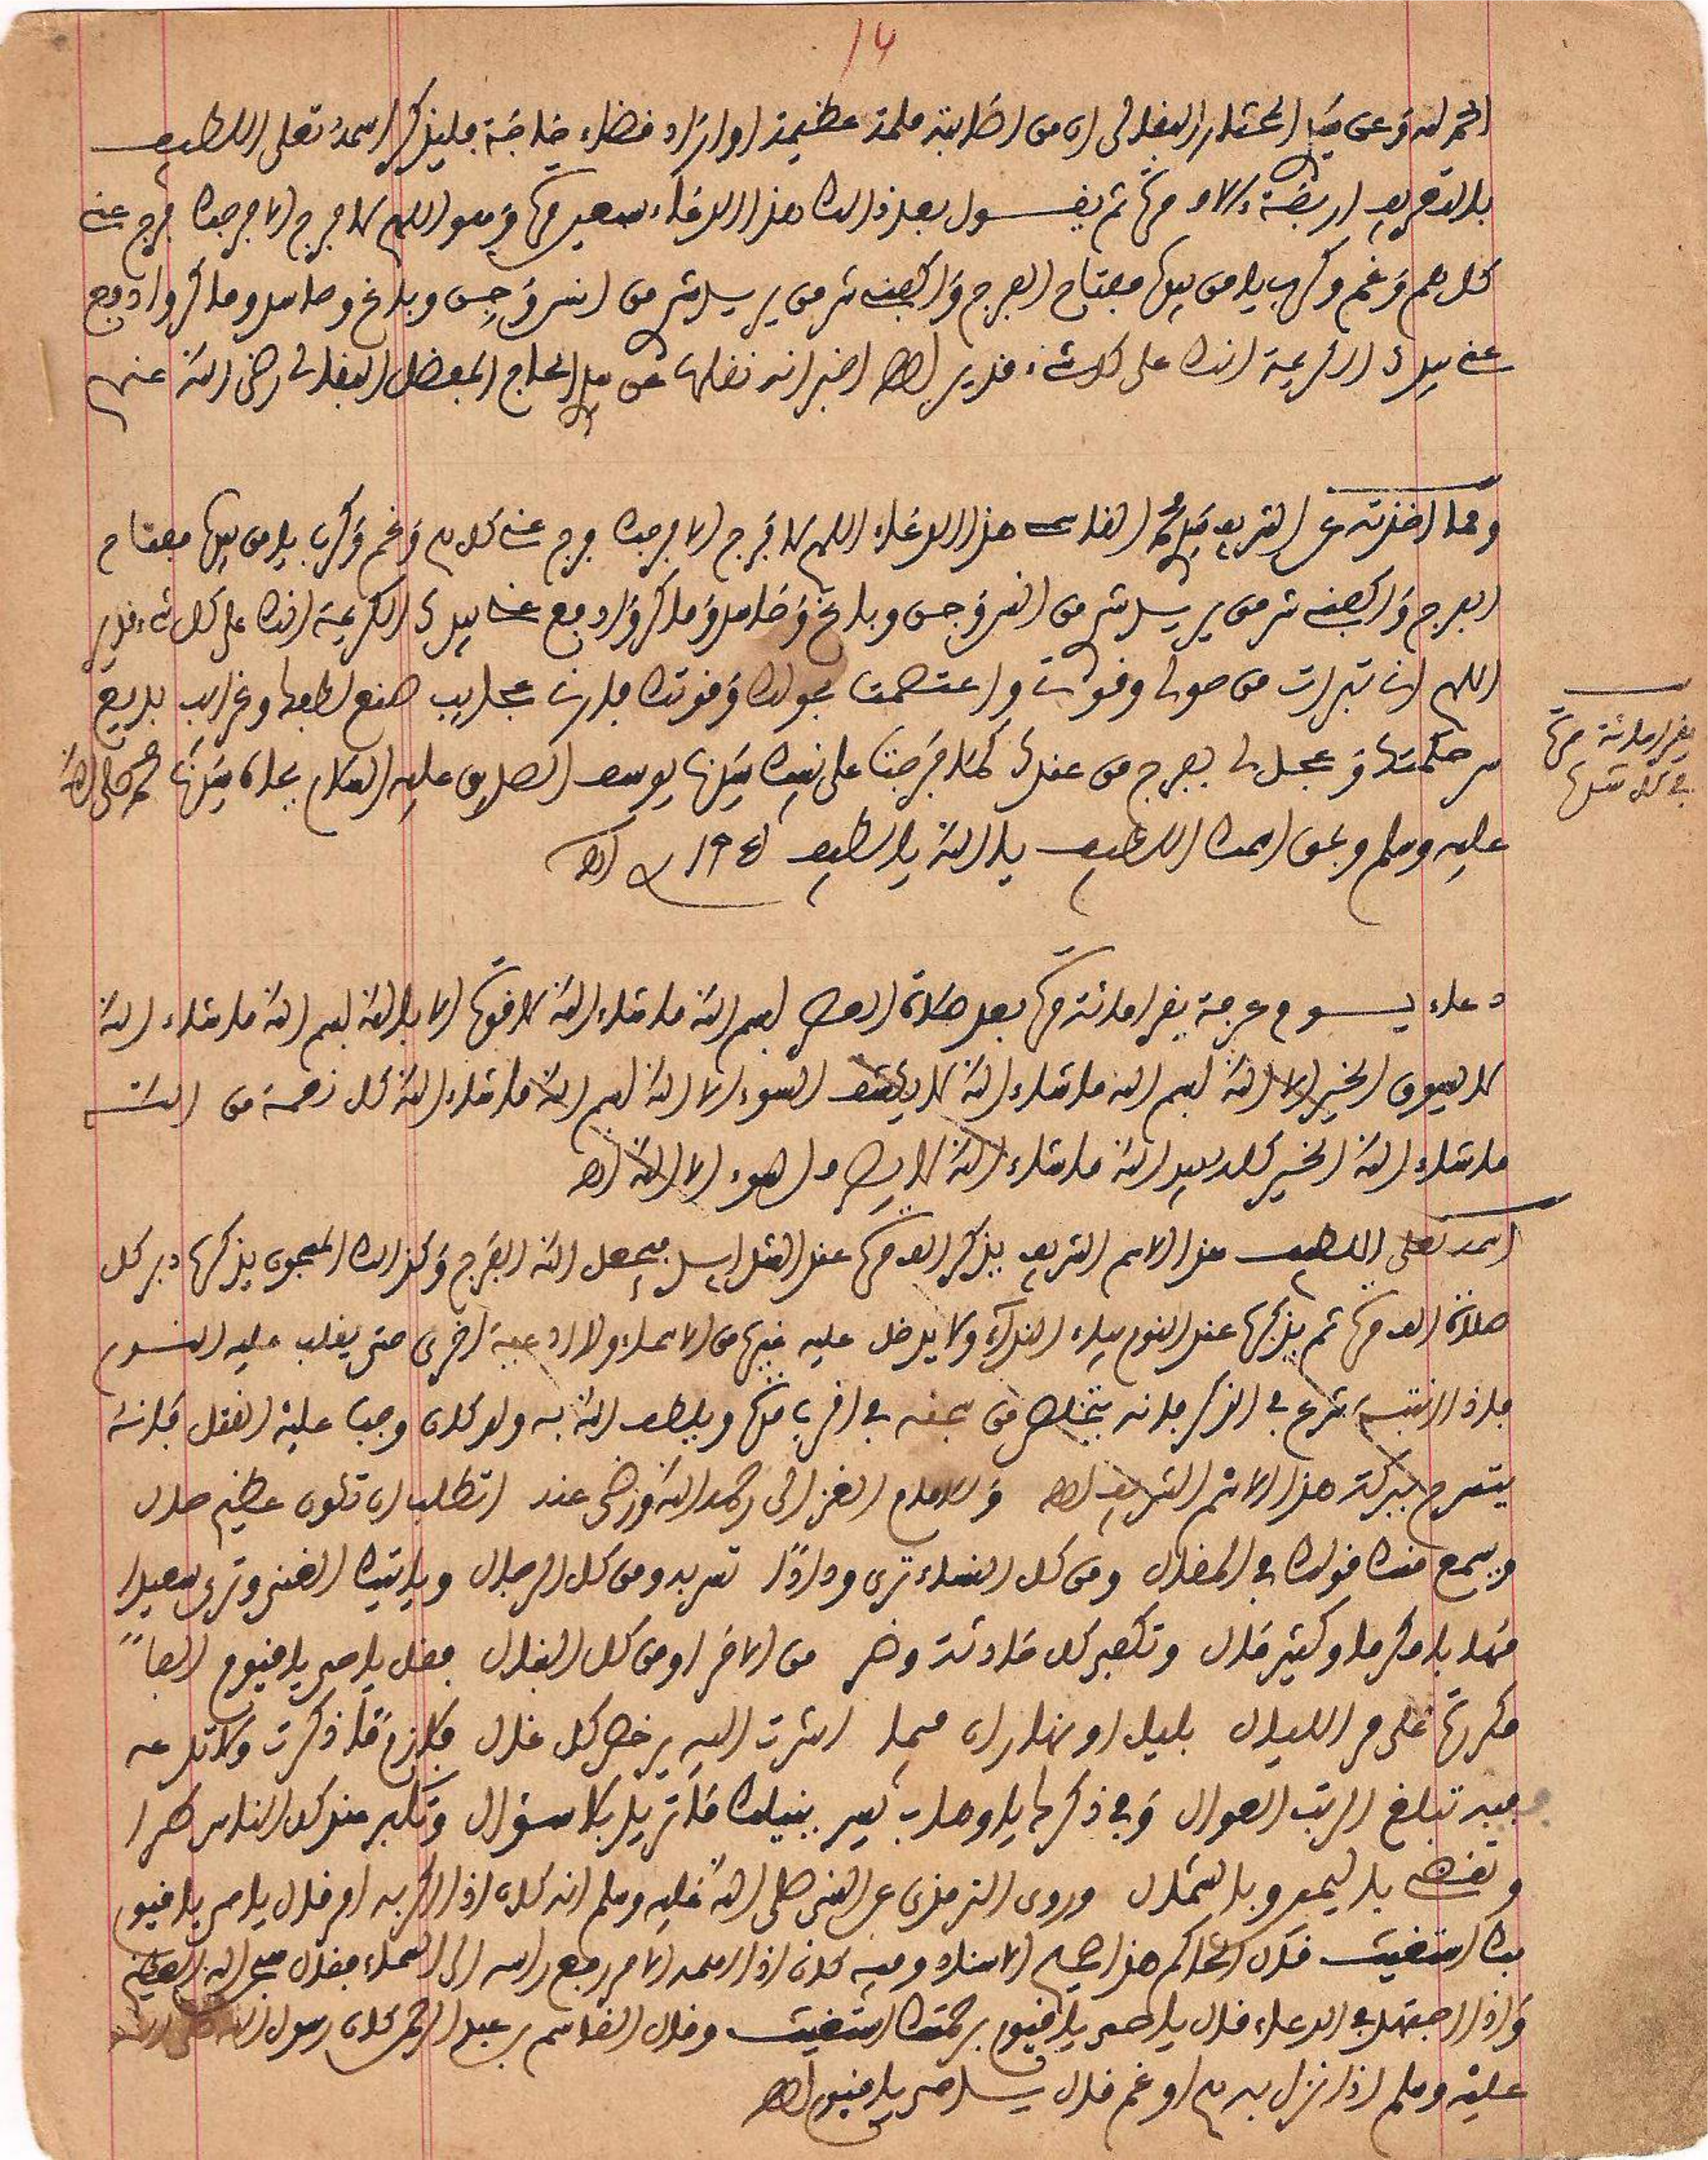 14
الحمد لله وعن سيد المختار البغالى ان من اصابته ملمة عظيمة او اراد قضاء حاجة فليذكر اسمه تعلى اللطيف
بالتعريف اربعة ءالاف مرة ثم يقول بعد ذالك هذا الدعاء سبعين مرة وهو اللهم لا فرج الا فرجك فرج عنى
كل هم وغم وكرب يا من بيده مفتاح الفرج واكفنى شر من يريد شر من انس وجن وباغ وحاسد وماكر وادفع
عنى بيدك الكريمة انك على كل شىء قدير اهـ اخبر انه نقلها عن سيد الحاج المفضل البغالى رضى الله عنهم
ومما اخذته عن الشريف سيد محمد القادر هذا الدعاء اللهم لا فرج الا فرجك فرج عنى كل هم وغم وكرب يا من بيده مفتاح
الفرج واكفنى شر من يريد شر من انس وجن وباغ وحاسد وماكر وادفع عنى بيدك الكريمة انك على كل شىء قدير
اللهم انى تبرات من حولى وقوتى واعتصمت بحولك وقوتك فارنى عجايب صنع لطفك وغرايب بديع
سر حكمتك وعجل لى بفرج من عندك كما فرجت على نبيك سيدنا يوسف الصديق عليه السلام بجاه سيدنا محمد صلى الله
عليه وسلم وبحق اسمك اللطيف يا الله يا لطيف اهـ
يقرا مائة مرة
فى كل شدة
دعاء يوم عرفة يقرا مائة مرة بعد صلاة العصر بسم الله ما شاء الله لا قوة الا بالله بسم الله ما شاء الله
لا يسوق الخير الا الله بسم الله ما شاء الله لا يكشف السوء الا الله بسم الله ما شاء الله كل نعمة من الله
ما شاء الله الخير كله بيد الله ما شاء الله لا يصرف السوء الا الله اهـ
اسمه تعلى اللطيف هذا الاسم الشريف يذكر الف مرة عند الشدايد فيجعل الله الفرج وكذالك المسجون يذكرها دبر كل
صلاة الف مرة ثم يذكرها عند النوم بياء النداء ولا يدخل عليه غيرها من الاسماء ولا ادعية اخرى حتى يغلب عليه النوم
فاذا انتبه شرع فى الذكر فانه يتخلص من سجنه فى اقرب مدة ويلطف الله به ولو كان وجب عليه القتل فانه
يتسرح ببركة هذا الاسم الشريف اهـ وللامام الغزالى رحمه الله ورضى عنه اتطلب ان تكون عظيم حال
ويسمع منك قولك فى المقال ومن كل النساء ترى ودادا تسر به ومن كل الرجال وياتيك الغنى وترى سعيدا
مهابا مكرما وكثير مال وتكفى كل حادثة وضر من الامرا ومن كل الفعال فقل يا حى يا قيوم الفا
مكررة على مر الليال بليل او نهار ان فيما اشرت اليه يرخص كل غال فلازم ما ذكرت ولا تدعه
فبه تبلغ الرتب العوال وفى ذكر يا وهاب سر ينيلك ما تريد بلا سؤال وتكبر عند كل الناس طرا
وتقضى باليمين وبالشمال وروى الترمذى عن النبى صلى الله عليه وسلم انه كان اذا اكربه امر قال يا حى يا قيوم
بك استغيث قال الحاكم هذا صحيح الاسناد وفيه كان اذا اهمه الامر رفع راسه الى السماء فقال سبحان الله العظيم
واذا اجتهد فى الدعاء قال يا حى يا قيوم برحمتك استغيث وقال القاسم بن عبد الرحمن كان رسول الله صلى الله
عليه وسلم اذا نزل به هم او غم قال يا حى يا قيوم اهـ